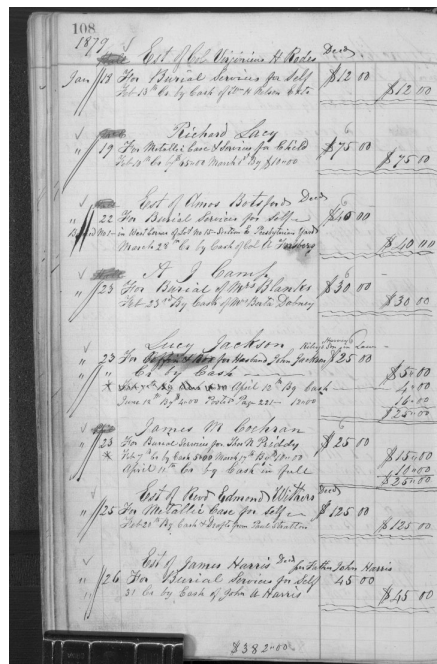 108
1879 Est of Col Virginius H Rodes Decd
Jan 18 For Burial Services for Self $12 00
Feb 13th Cr by Cash of Wm H Nelson $12 00
Richard Lacy
" 19 For Metallic Case & Services for Child $75 00
Feb 10th Cr By $5 00 March By $10 00 $75 00
Est of Amos Botsford Decd
" 22 For Burial Services for Self $40 00
in West of Lot No 15 Section E Presbyterian Yard
March 28th Cr by Cash of Col A Forsberg $40 00
A J Camp
" 23 For Burial of Mrs Blanks $30 00
Feb 23rd By Cash of Mrs Dabney $30 00
Lucy Jackson
" 23 For Coffin & Box for Husband John Jackson $25 00
" " Cr by Cash $5 00
April 12th By Cash 4 00
June 12th By $4 00 Posted Page 221 16 00
$25 00
James M Cochran
" 23 For Burial Services for Jno N Priddy $25 00
Feb 7th Cr by Cash 5 00 March 7th By $10 00 $15 00
April 11th Cr by Cash in full 10 00
$25 00
Est of Revd Edmond Withers Decd
" 25 For Metallic Case for Self $125 00
Feb 21st By Cash & Drafts from Paul Stratton $125 00
Est of James Harris Decd for Father John Harris
" 26 For Burial Services for Self 45 00
31 Cr by Cash of John A Harris $45 00
$382 00